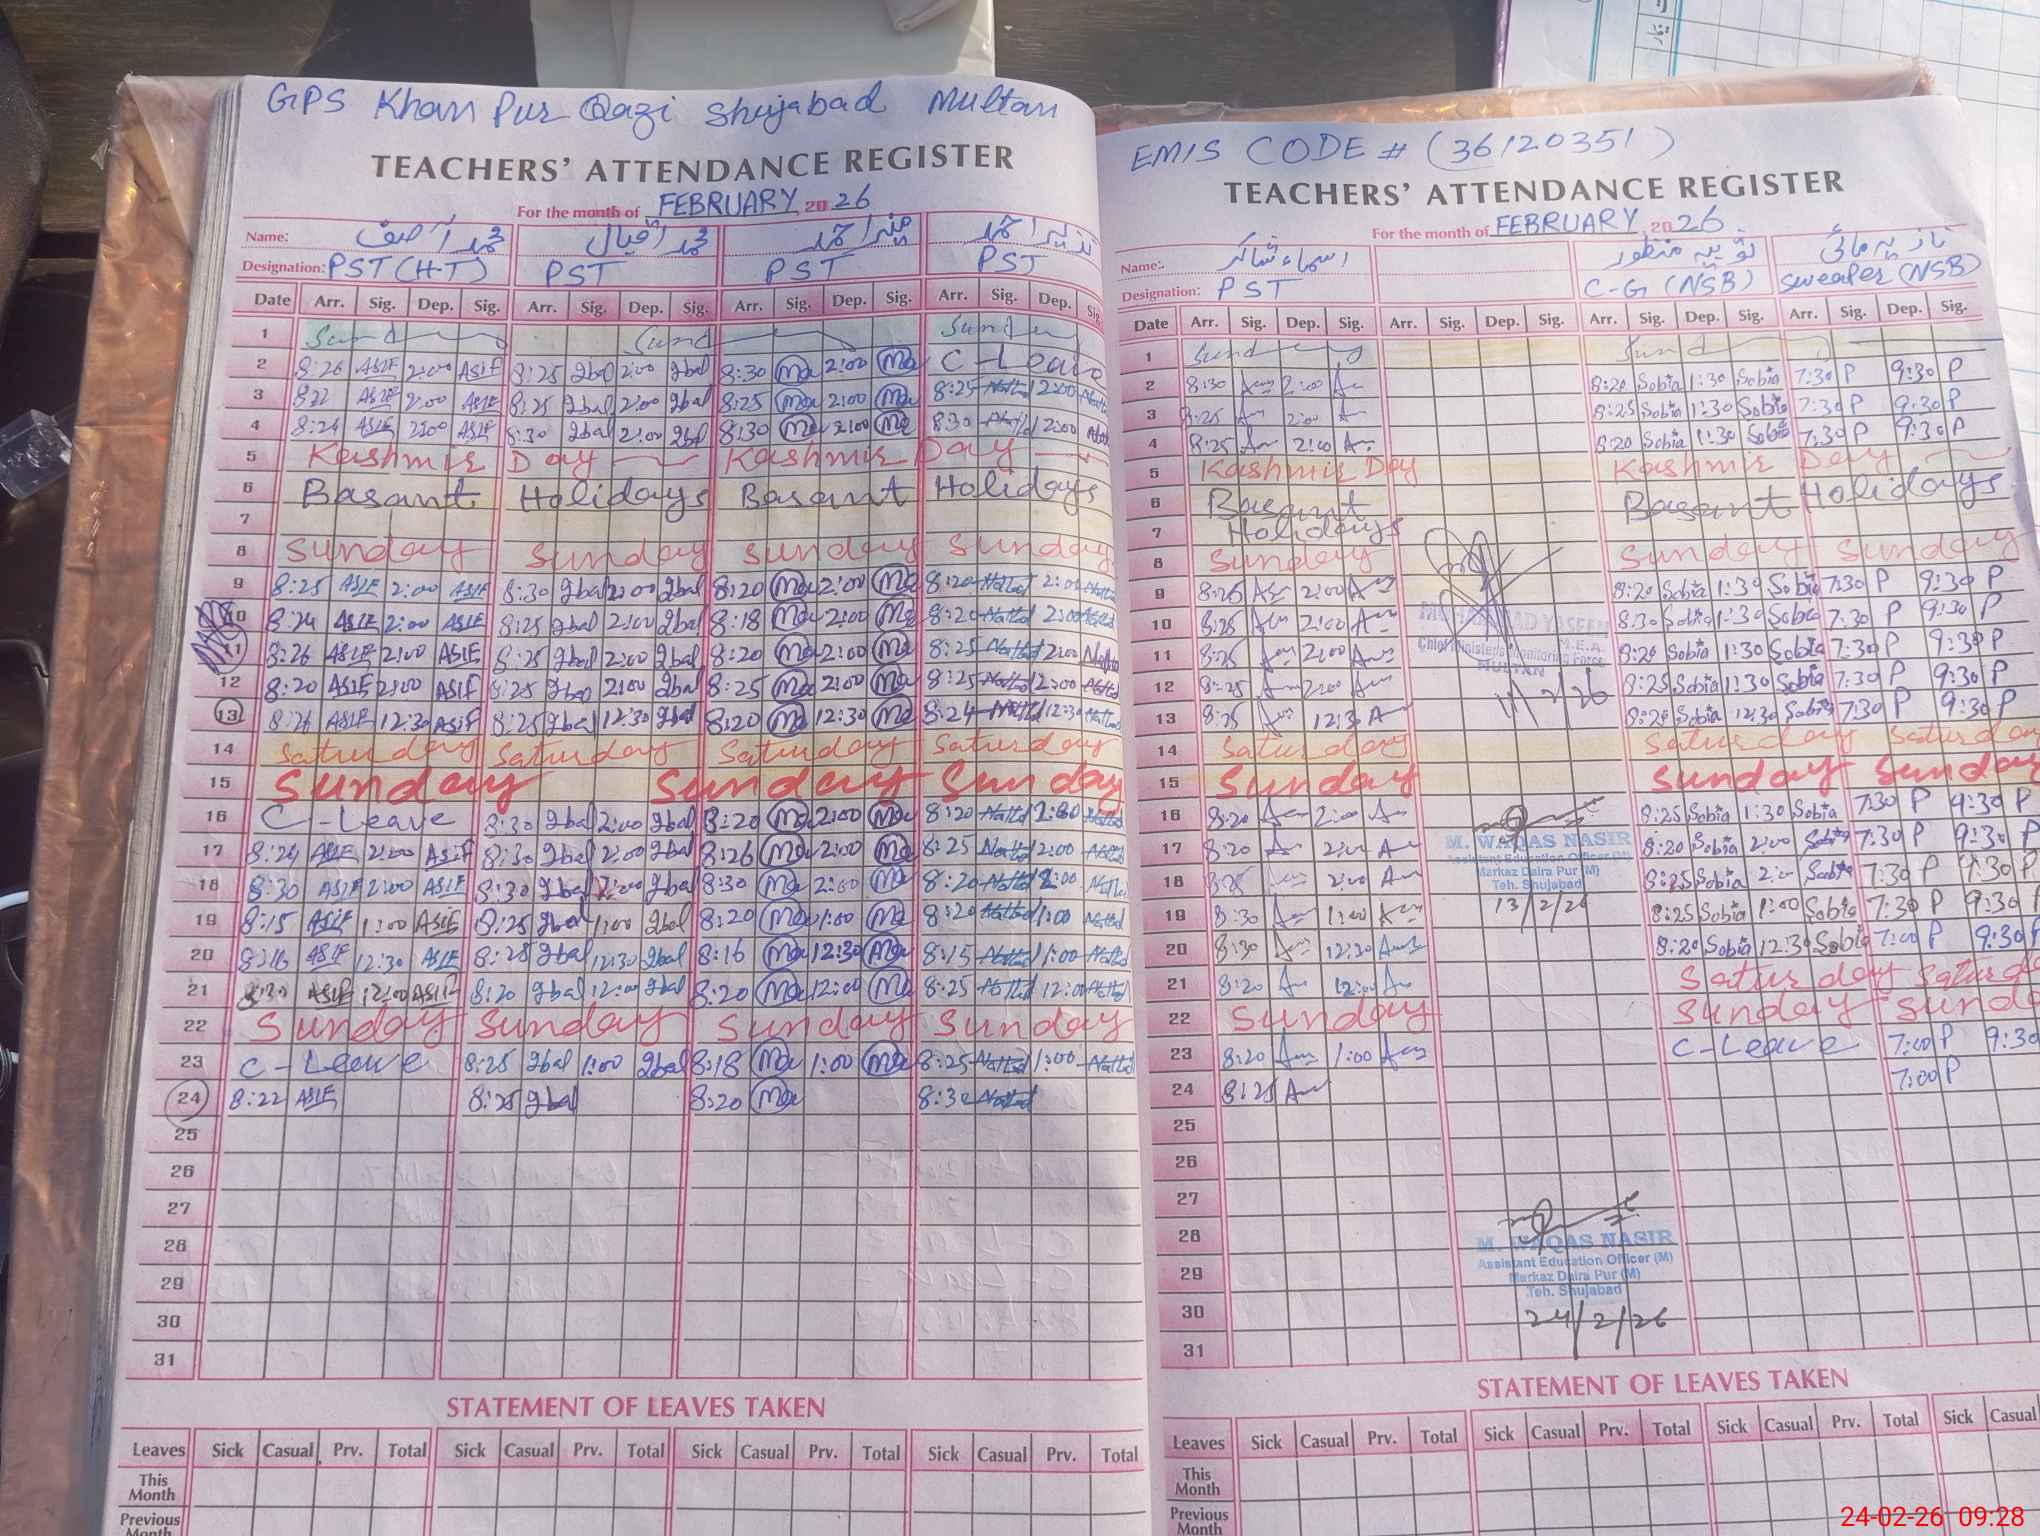 GPS Khan Pur Qazi Shujabad Multan
TEACHERS' ATTENDANCE REGISTER
For the month of FEBRUARY 2026
Name: محمد آصف محمد اقبال منیر احمد نذیر احمد
Designation: PST (H-T) PST PST PST
Date Arr. Sig. Dep. Sig. Arr. Sig. Dep. Sig. Arr. Sig. Dep. Sig. Arr. Sig. Dep. Sig.
1 Sunday Sunday Sunday
2 8:26 ASIF 2:00 ASIF 8:25 Ibal 2:00 Ibal 8:30 Ma 2:00 Ma C-Leave
3 8:22 ASIF 2:00 ASIF 8:25 Ibal 2:00 Ibal 8:25 Ma 2:00 Ma 8:25 2:00
4 8:24 ASIF 2:00 ASIF 8:30 Ibal 2:00 Ibal 8:30 Ma 2:00 Ma 8:30 2:00
5 Kashmir Day Kashmir Day
6 Basant Holidays Basant Holidays
7
8 Sunday Sunday Sunday Sunday
9 8:25 ASIF 2:00 ASIF 8:30 Ibal 2:00 Ibal 8:20 Ma 2:00 Ma 8:20 2:00
10 8:24 ASIF 2:00 ASIF 8:25 Ibal 2:00 Ibal 8:18 Ma 2:00 Ma 8:20 2:00
11 8:26 ASIF 2:00 ASIF 8:25 Ibal 2:00 Ibal 8:20 Ma 2:00 Ma 8:25 2:00
12 8:20 ASIF 2:00 ASIF 8:25 Ibal 2:00 Ibal 8:25 Ma 2:00 Ma 8:25 2:00
13 8:26 ASIF 12:30 ASIF 8:25 Ibal 12:30 Ibal 8:20 Ma 12:30 Ma 8:24 12:30
14 Saturday Saturday Saturday Saturday
15 Sunday Sunday Sunday
16 C-Leave 8:30 Ibal 2:00 Ibal 8:20 Ma 2:00 Ma 8:20
17 8:24 ASIF 2:00 ASIF 8:30 Ibal 2:00 Ibal 8:26 Ma 2:00 Ma 8:25 2:00
18 8:30 ASIF 2:00 ASIF 8:30 Ibal 2:00 Ibal 8:30 Ma 2:00 Ma 8:20 2:00
19 8:15 ASIF 1:00 ASIF 8:25 Ibal 1:00 Ibal 8:20 Ma 1:00 Ma 8:20 1:00
20 8:16 ASIF 12:30 ASIF 8:28 Ibal 12:30 Ibal 8:16 Ma 12:30 Ma 8:15 1:00
21 8:30 ASIF 12:00 ASIF 8:20 Ibal 12:00 Ibal 8:20 Ma 12:00 Ma 8:25 12:00
22 Sunday Sunday Sunday Sunday
23 C-Leave 8:25 Ibal 1:00 Ibal 8:18 Ma 1:00 Ma 8:25 1:00
24 8:22 ASIF 8:25 Ibal 8:20 Ma 8:30
25
26
27
28
29
30
31
STATEMENT OF LEAVES TAKEN
Leaves Sick Casual Prv. Total Sick Casual Prv. Total Sick Casual Prv. Total Sick Casual Prv. Total
This Month
Previous Month
EMIS CODE # (36120351)
TEACHERS' ATTENDANCE REGISTER
For the month of FEBRUARY 2026
Name: اسماء شاکر ثوبیہ منظور نازیہ مائی
Designation: PST C-G (NSB) Sweaper (NSB)
Date Arr. Sig. Dep. Sig. Arr. Sig. Dep. Sig. Arr. Sig. Dep. Sig. Arr. Sig. Dep. Sig.
1 Sunday Sund
2 8:30 2:00 8:20 Sobia 1:30 Sobia 7:30 P 9:30 P
3 8:25 2:00 8:25 Sobia 1:30 Sobia 7:30 P 9:30 P
4 8:25 2:00 8:20 Sobia 1:30 Sobia 7:30 P 9:30 P
5 Kashmir Day Kashmir Day
6 Basant Basant Holidays
7 Holidays
8 Sunday Sunday Sunday
9 8:26 2:00 8:20 Sobia 1:30 Sobia 7:30 P 9:30 P
10 8:25 2:00 8:30 Sobia 1:30 Sobia 7:30 P 9:30 P
11 8:25 2:00 8:20 Sobia 1:30 Sobia 7:30 P 9:30 P
12 8:25 2:00 8:25 Sobia 1:30 Sobia 7:30 P 9:30 P
13 8:25 12:3 8:20 Sobia 12:30 Sobia 7:30 P 9:30 P
MUHAMMAD YASEEN
M.E.A.
Chief Minister's Monitoring Force
MULTAN
11/2/26
14 Saturday Saturday Saturday
15 Sunday Sunday Sunday
16 8:20 2:00 8:25 Sobia 1:30 Sobia 7:30 P 9:30 P
17 8:20 2:00 8:20 Sobia 2:00 Sobia 7:30 P 9:30 P
18 8:25 2:00 8:25 Sobia 2:00 Sobia 7:30 P 9:30 P
19 8:30 1:00 8:25 Sobia 1:00 Sobia 7:30 P 9:30 P
20 8:30 12:30 8:20 Sobia 12:30 Sobia 7:00 P 9:30 P
M. WAQAS NASIR
Assistant Education Officer (M)
Markaz Daira Pur (M)
Teh. Shujabad
13/2/26
21 8:20 12:00 Saturday Saturda
22 Sunday Sunday Sund
23 8:20 1:00 C-Leave 7:00 P 9:30
24 8:25 7:00 P
25
26
27
28
29
30
31
M. WAQAS NASIR
Assistant Education Officer (M)
Markaz Daira Pur (M)
Teh. Shujabad
24/2/26
STATEMENT OF LEAVES TAKEN
Leaves Sick Casual Prv. Total Sick Casual Prv. Total Sick Casual Prv. Total Sick Casual
This Month
Previous Month
24-02-26 09:28